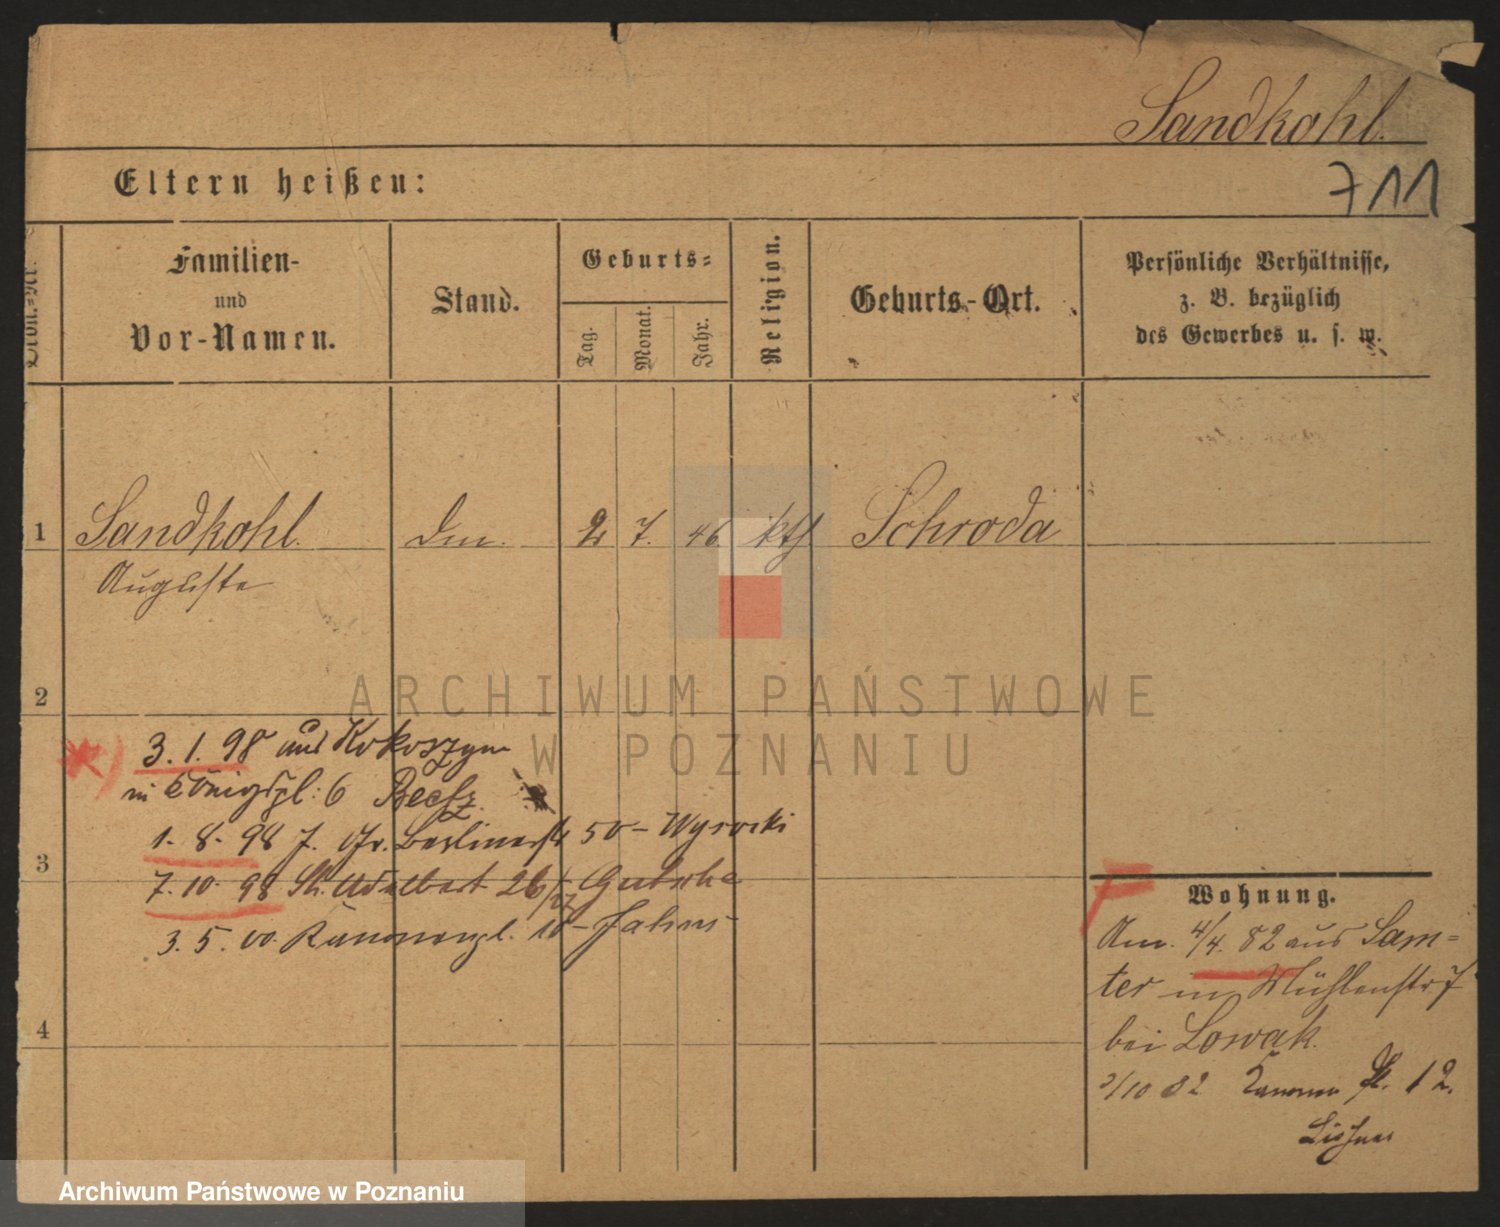 Sandkohl.
711
Eltern heißen:
Familien- und Vor-Namen.
Stand.
Geburts-
Tag.
Monat.
Jahr.
Religion.
Geburts-Ort.
Persönliche Verhältnisse,
z. B. bezüglich
des Gewerbes u. s. w.
1 Sandkohl. 2 7. 46 kth Schroda
Auguste
2
ARCHIWUM PAŃSTWOWE
W POZNANIU
3.1.98 aus
in Königspl: 6
1. 8. 98 7. Gr. Berlinerstr 50 - Wysocki
3
7. 10. 98 St. Adalbert 26/27
3. 5. 00. Kanonenpl. 10 -
Wohnung.
Am. 4/4. 82 aus Sam-
ter in Mühlenstr 7
bei Lowak.
4
2/10 82 Kanonen Pl. 12.
Archiwum Państwowe w Poznaniu